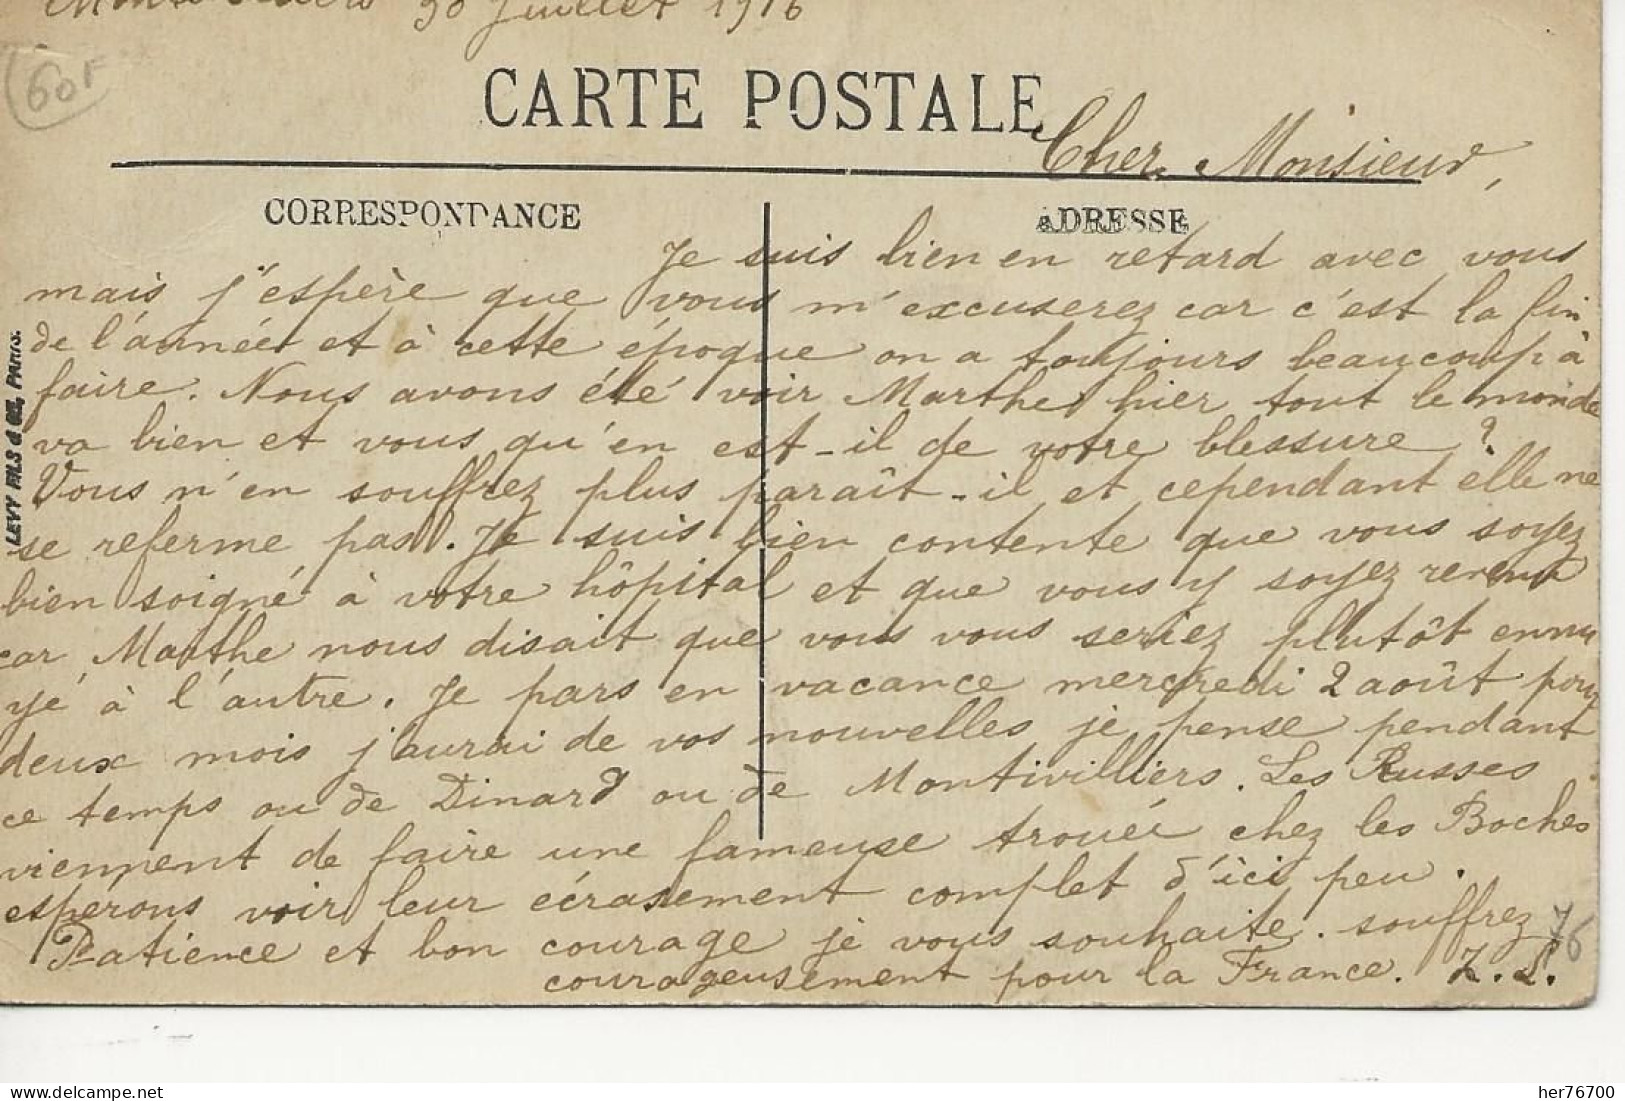 30 Juillet 1916
60F
CARTE POSTALE
Cher Monsieur,
CORRESPONDANCE
ADRESSE
Je suis bien en retard avec vous
mais j'espère que vous m'excuserez car c'est la fin
de l'année et à cette époque on a toujours beaucoup à
faire. Nous avons été voir Marthe hier tout le monde
va bien et vous qu'en est-il de votre blessure ?
Vous n'en souffrez plus paraît-il et cependant elle ne
se referme pas. Je suis bien contente que vous soyez
bien soigné à votre hôpital et que vous y soyez revenu
car Marthe nous disait que vous vous seriez plutôt ennu
yé à l'autre. Je pars en vacance mercredi 2 août pour
deux mois j'aurai de vos nouvelles je pense pendant
ce temps ou de Dinard ou de Montivilliers. Les Russes
viennent de faire une fameuse trouée chez les Boches
espérons voir leur écrasement complet d'ici peu.
Patience et bon courage je vous souhaite. souffrez
courageusement pour la France. Z. L.
76
LEVY FILS & CIE, PARIS.
her76700